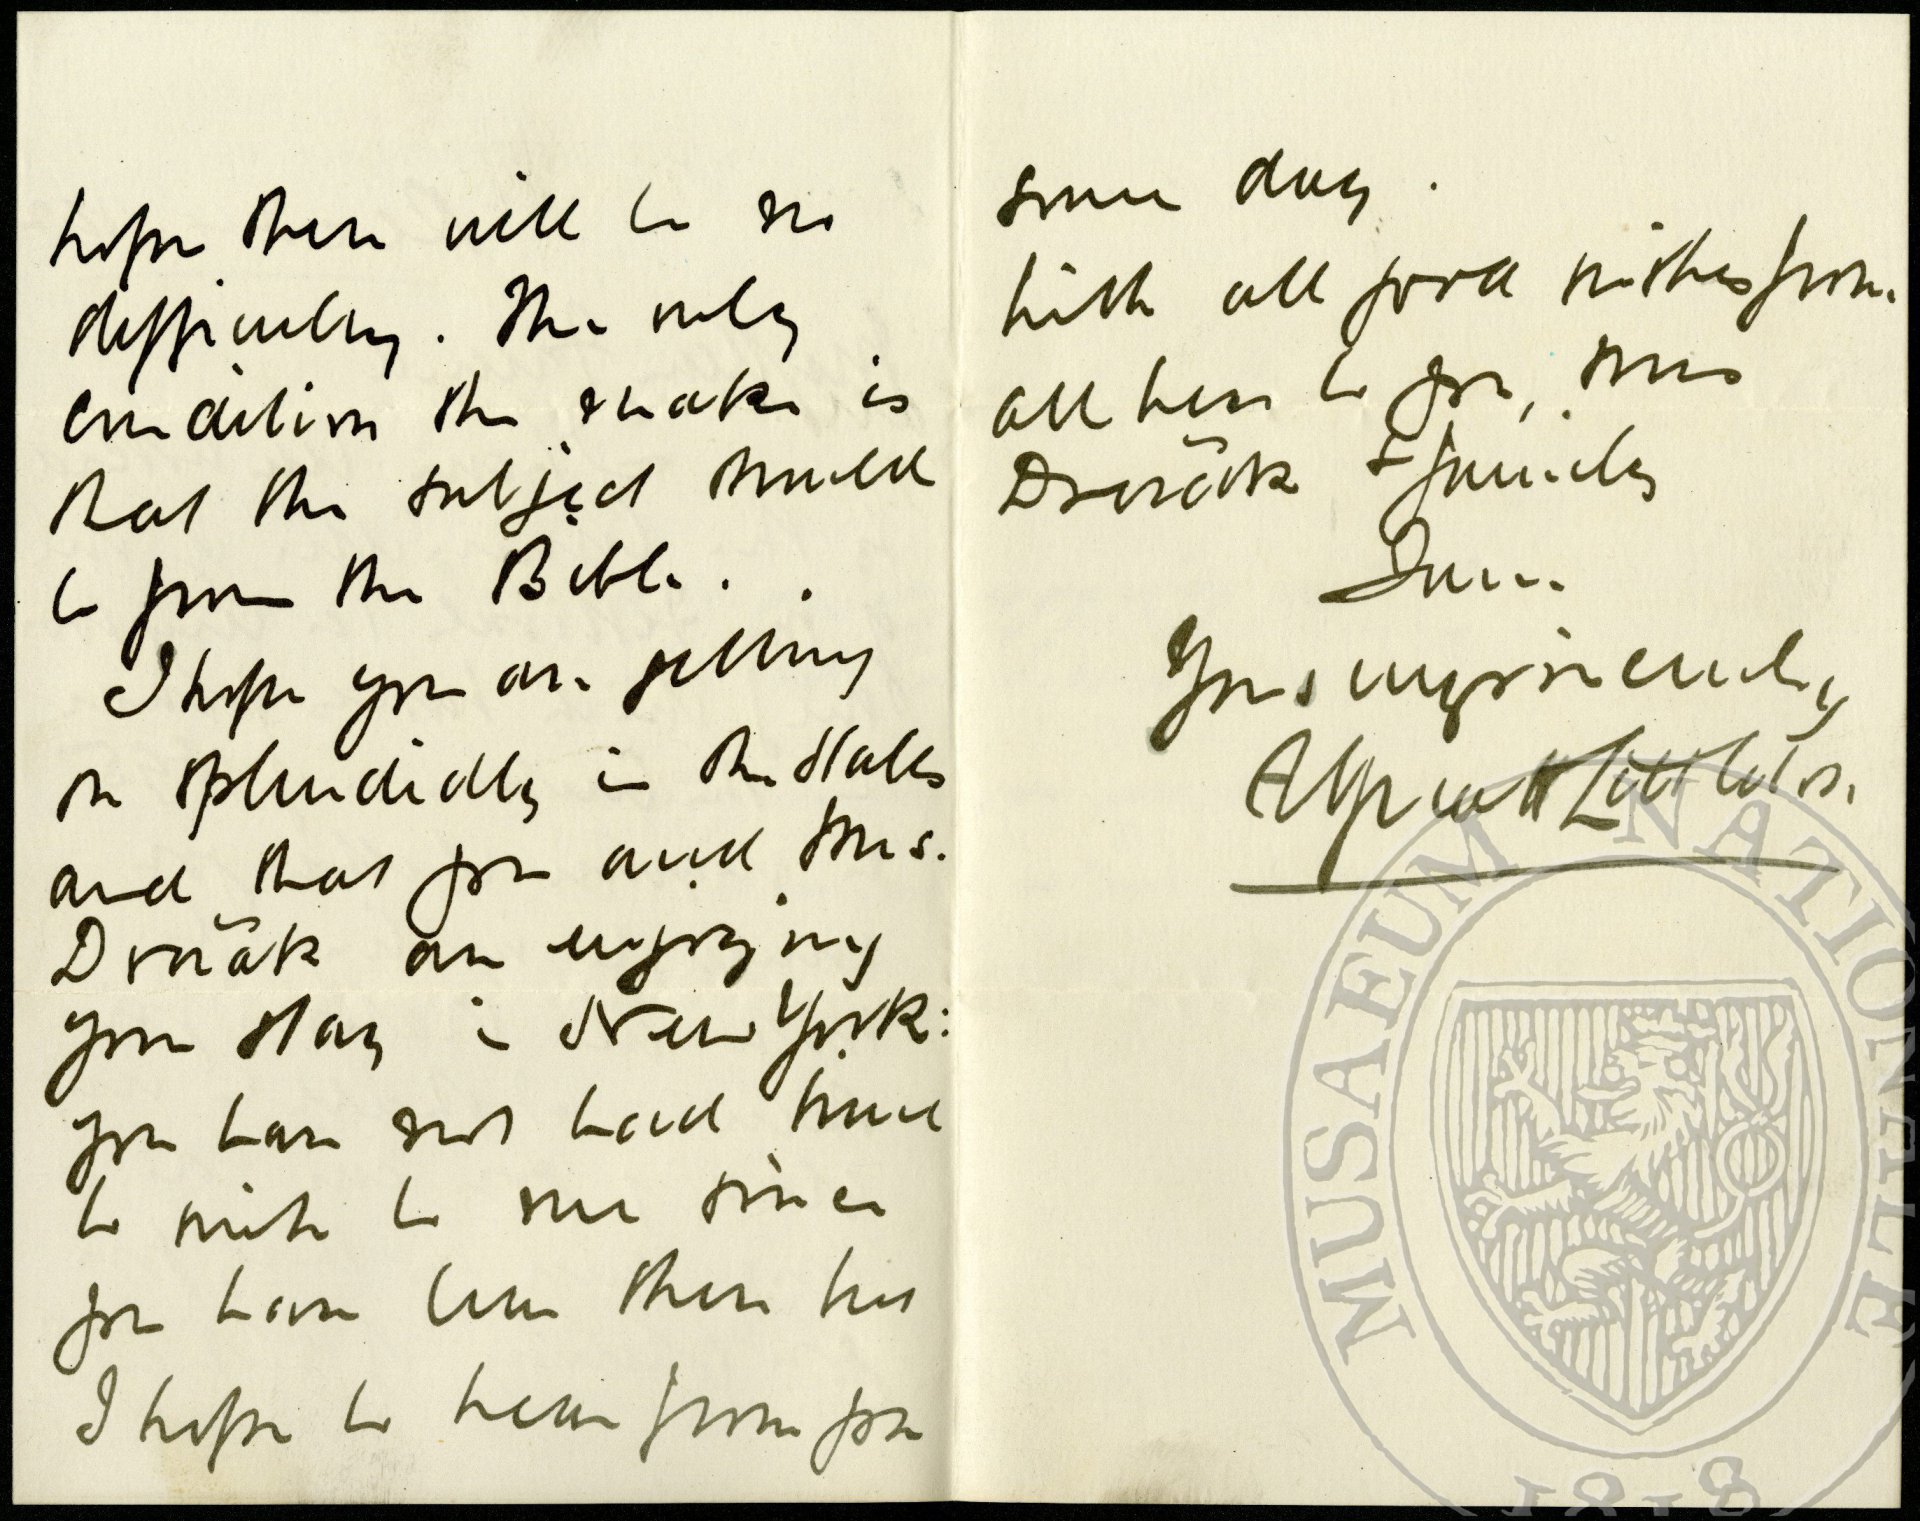 hope there will be no
difficulty. The only
condition they make is
that the subject should
be from the Bible.
I hope you are getting
on splendidly in the States
and that you and Mrs.
Dvořák are enjoying
your stay in New York:
you have not had time
to write to me since
you have been there but
I hope to hear from you
some day.
With all good wishes from
all here to you, Mrs
Dvořák & family
I am
Yours very sincerely
Alfred H Littleton.
MUSAEUM NATIONALE
1818